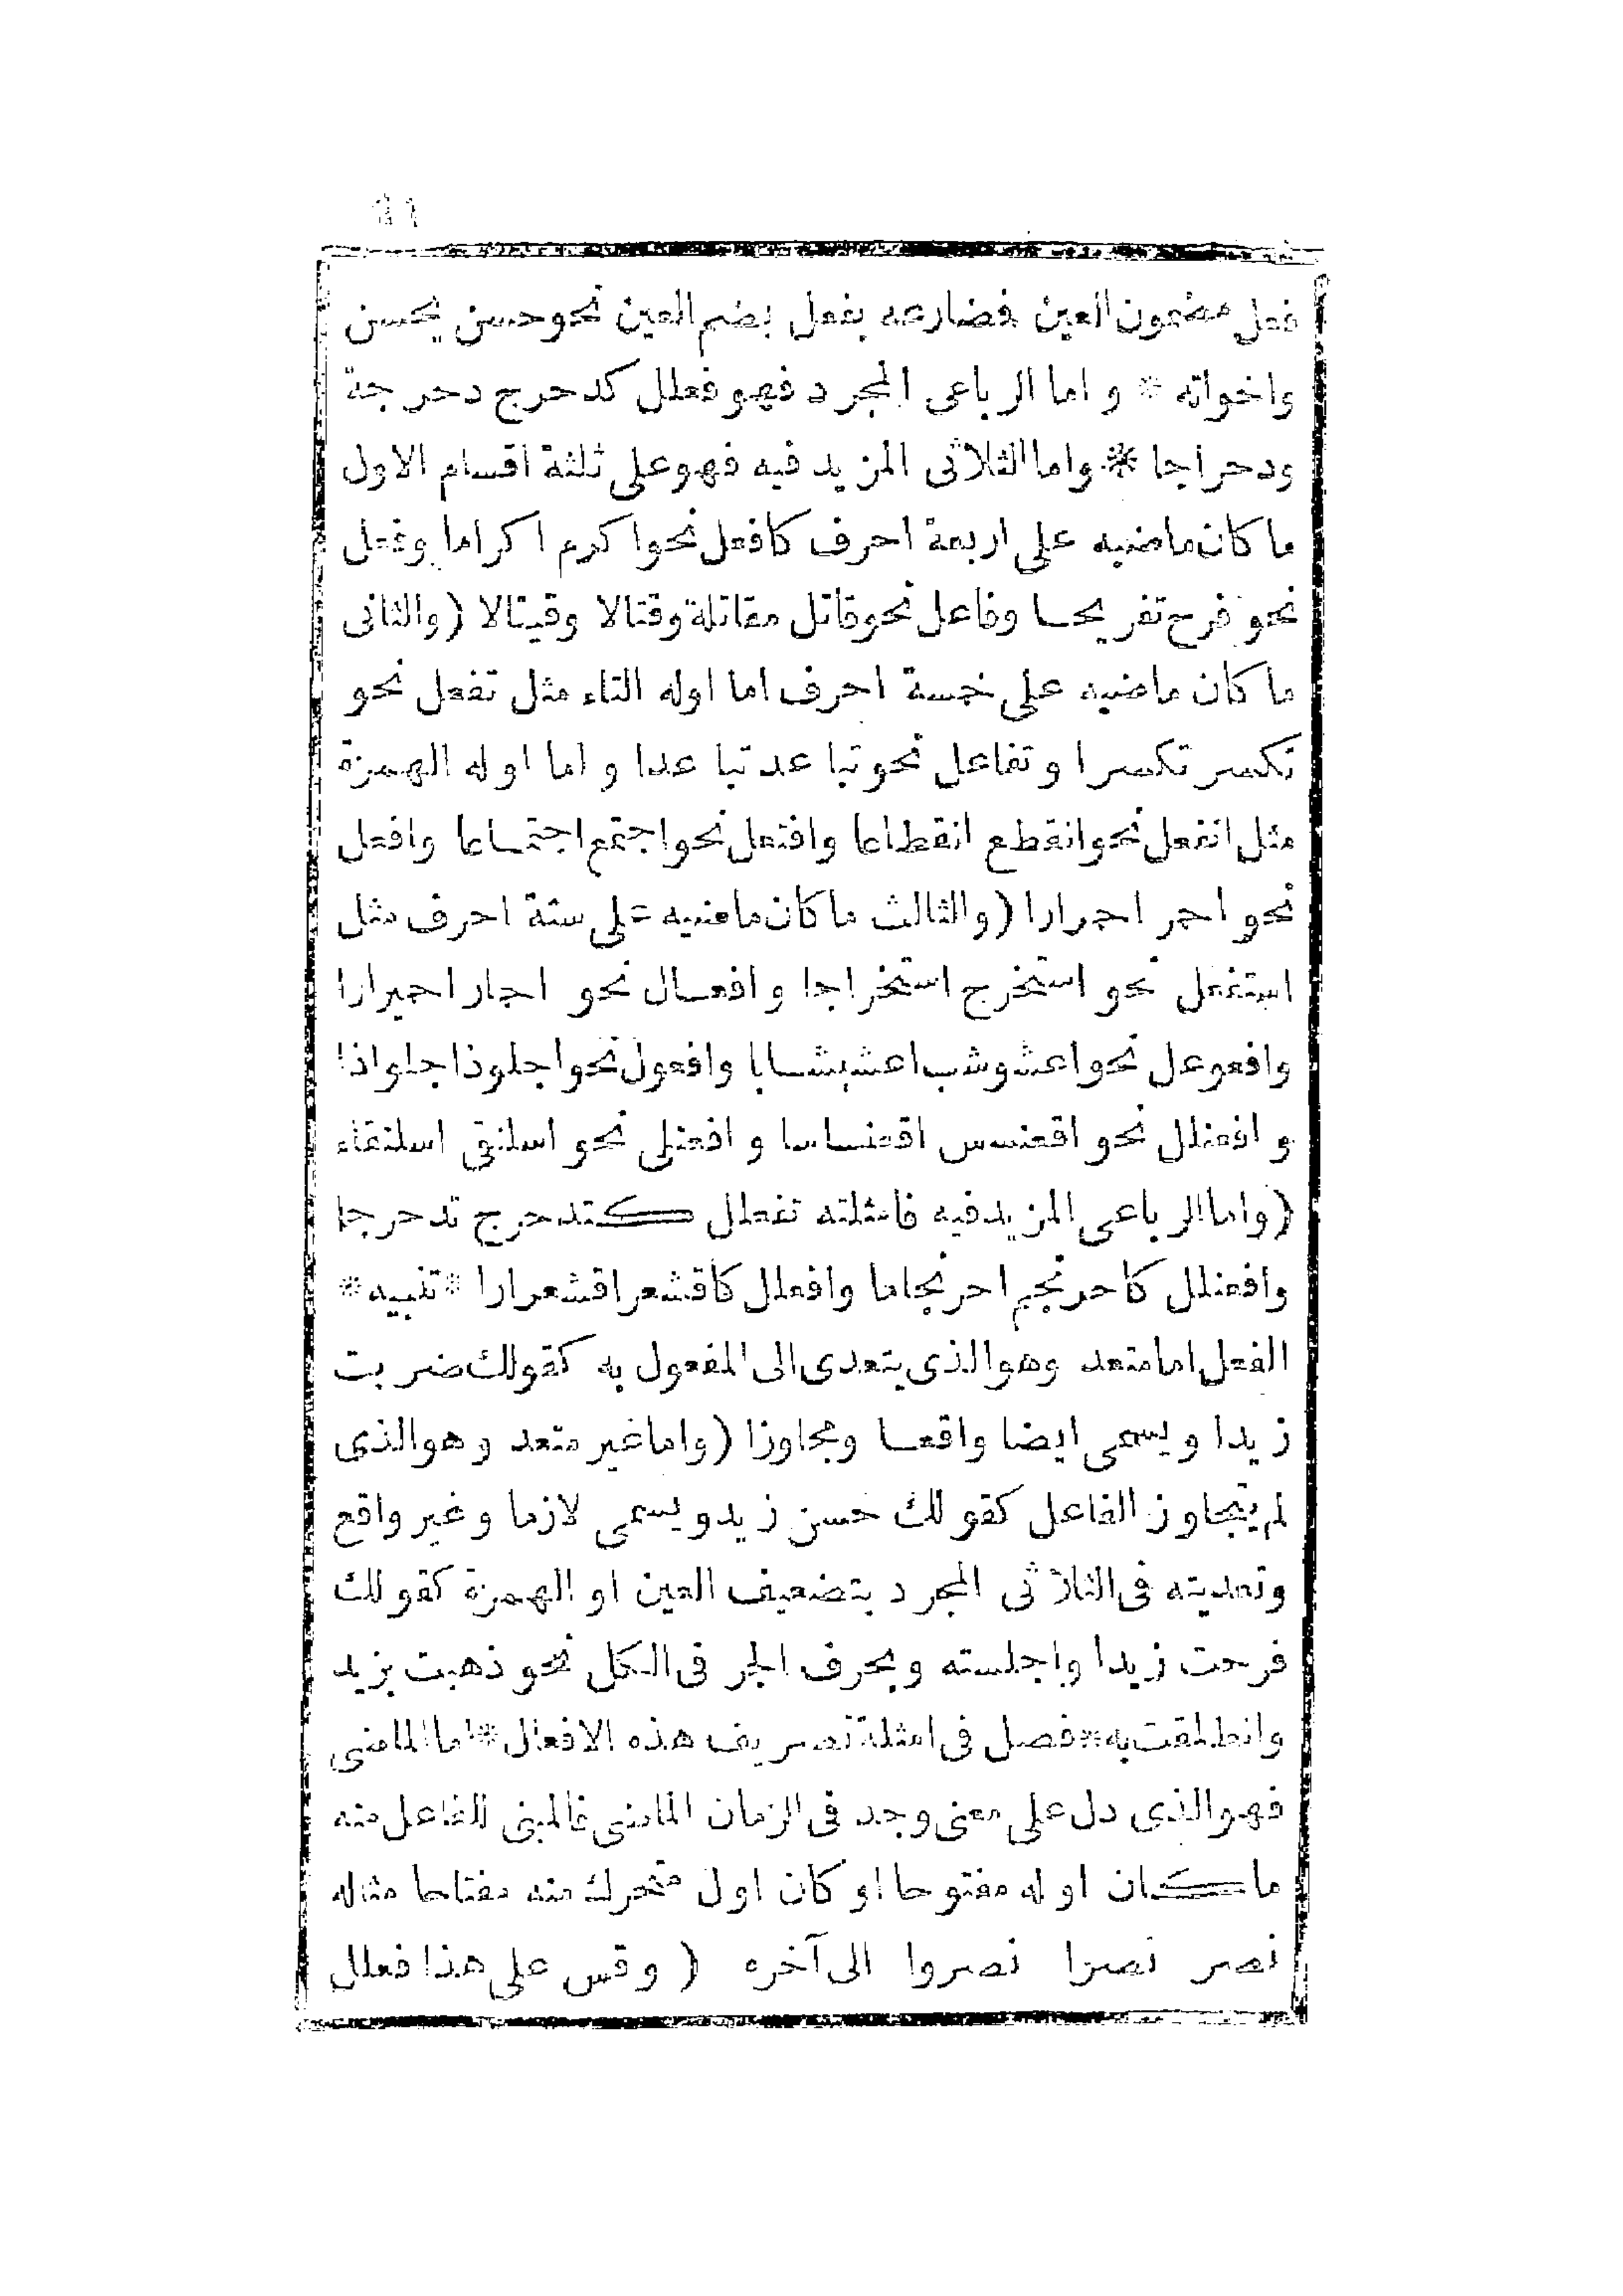 فعل مضمون العين فضارعه يفعل بضم العين نحو حسن يحسن
واخواته * واما الرباعى المجرد فهو فعلل كدحرج دحرجة
ودحراجا * واما الثلاثى المزيد فيه فهو على ثلثة اقسام الاول
ما كان ماضيه على اربعة احرف كافعل نحو اكرم اكراما وفعل
نحو فرح تفريحا وفاعل نحو قاتل مقاتلة وقتالا وقيتالا (والثانى
ما كان ماضيه على خمسة احرف اما اوله التاء مثل تفعل نحو
تكسر تكسرا وتفاعل نحو تباعد تباعدا واما اوله الهمزة
مثل انفعل نحو انقطع انقطاعا وافتعل نحو اجتمع اجتماعا وافعل
نحو احمر احمرارا (والثالث ما كان ماضيه على ستة احرف مثل
استفعل نحو استخرج استخراجا وافعال نحو احمار احميرارا
وافعوعل نحو اعشوشب اعشيشابا وافعول نحو اجلوذ اجلواذا
وافعنلل نحو اقعنسس اقعنساسا وافعنلى نحو اسلنقى اسلنقاء
(واما الرباعى المزيد فيه فامثلته تفعلل كتدحرج تدحرجا
وافعنلل كاحرنجم احرنجاما وافعلل كاقشعر اقشعرارا * تنبيه *
الفعل اما متعد وهو الذى يتعدى الى المفعول به كقولك ضربت
زيدا ويسمى ايضا واقعا ومجاوزا (واما غير متعد وهو الذى
لم يتجاوز الفاعل كقولك حسن زيد ويسمى لازما وغير واقع
وتعديته فى الثلاثى المجرد بتضعيف العين او الهمزة كقولك
فرحت زيدا واجلسته وبحرف الجر فى الكل نحو ذهبت بزيد
وانطلقت به * فصل فى امثلة تصريف هذه الافعال * اما الماضى
فهو الذى دل على معنى وجد فى الزمان الماضى فالمبنى للفاعل منه
ما كان اوله مفتوحا او كان اول متحرك منه مفتاحا مثاله
نصر نصرا نصروا الى آخره (وقس على هذا فعلل